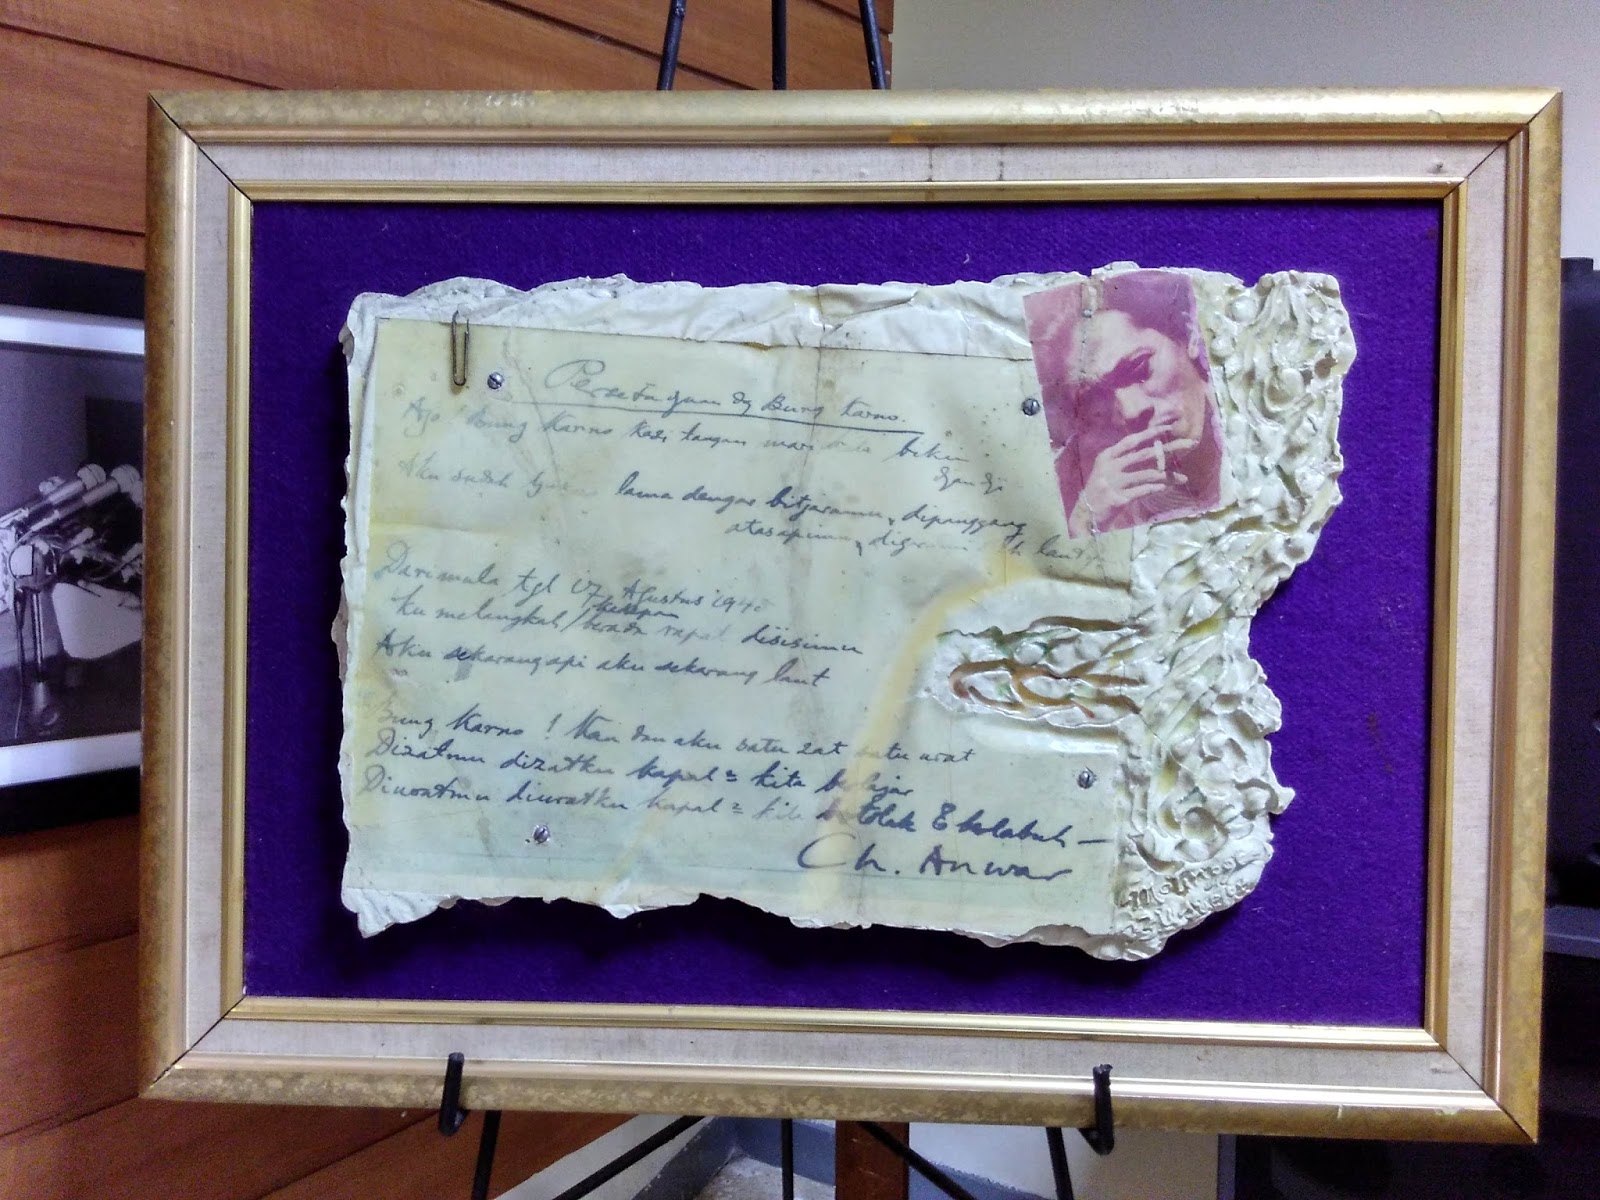 Persetujuan dg Bung Karno.
Ajo Bung Karno kasi tangan mari kita bikin
djandji
Aku sudah tjukup lama dengar bitjaramu, dipanggang
atas apimu, digarami oleh lautmu
Dari mula tgl 17 Agustus 1945
kedepan
ku melangkah / berada rapat disisimu
Aku sekarang api aku sekarang laut
Bung Karno ! Kau dan aku satu zat satu urat
Dizatmu dizatku kapal2 kita berlajar
Diuratmu diuratku kapal2 kita bertolak & berlabuh —
Ch. Anwar